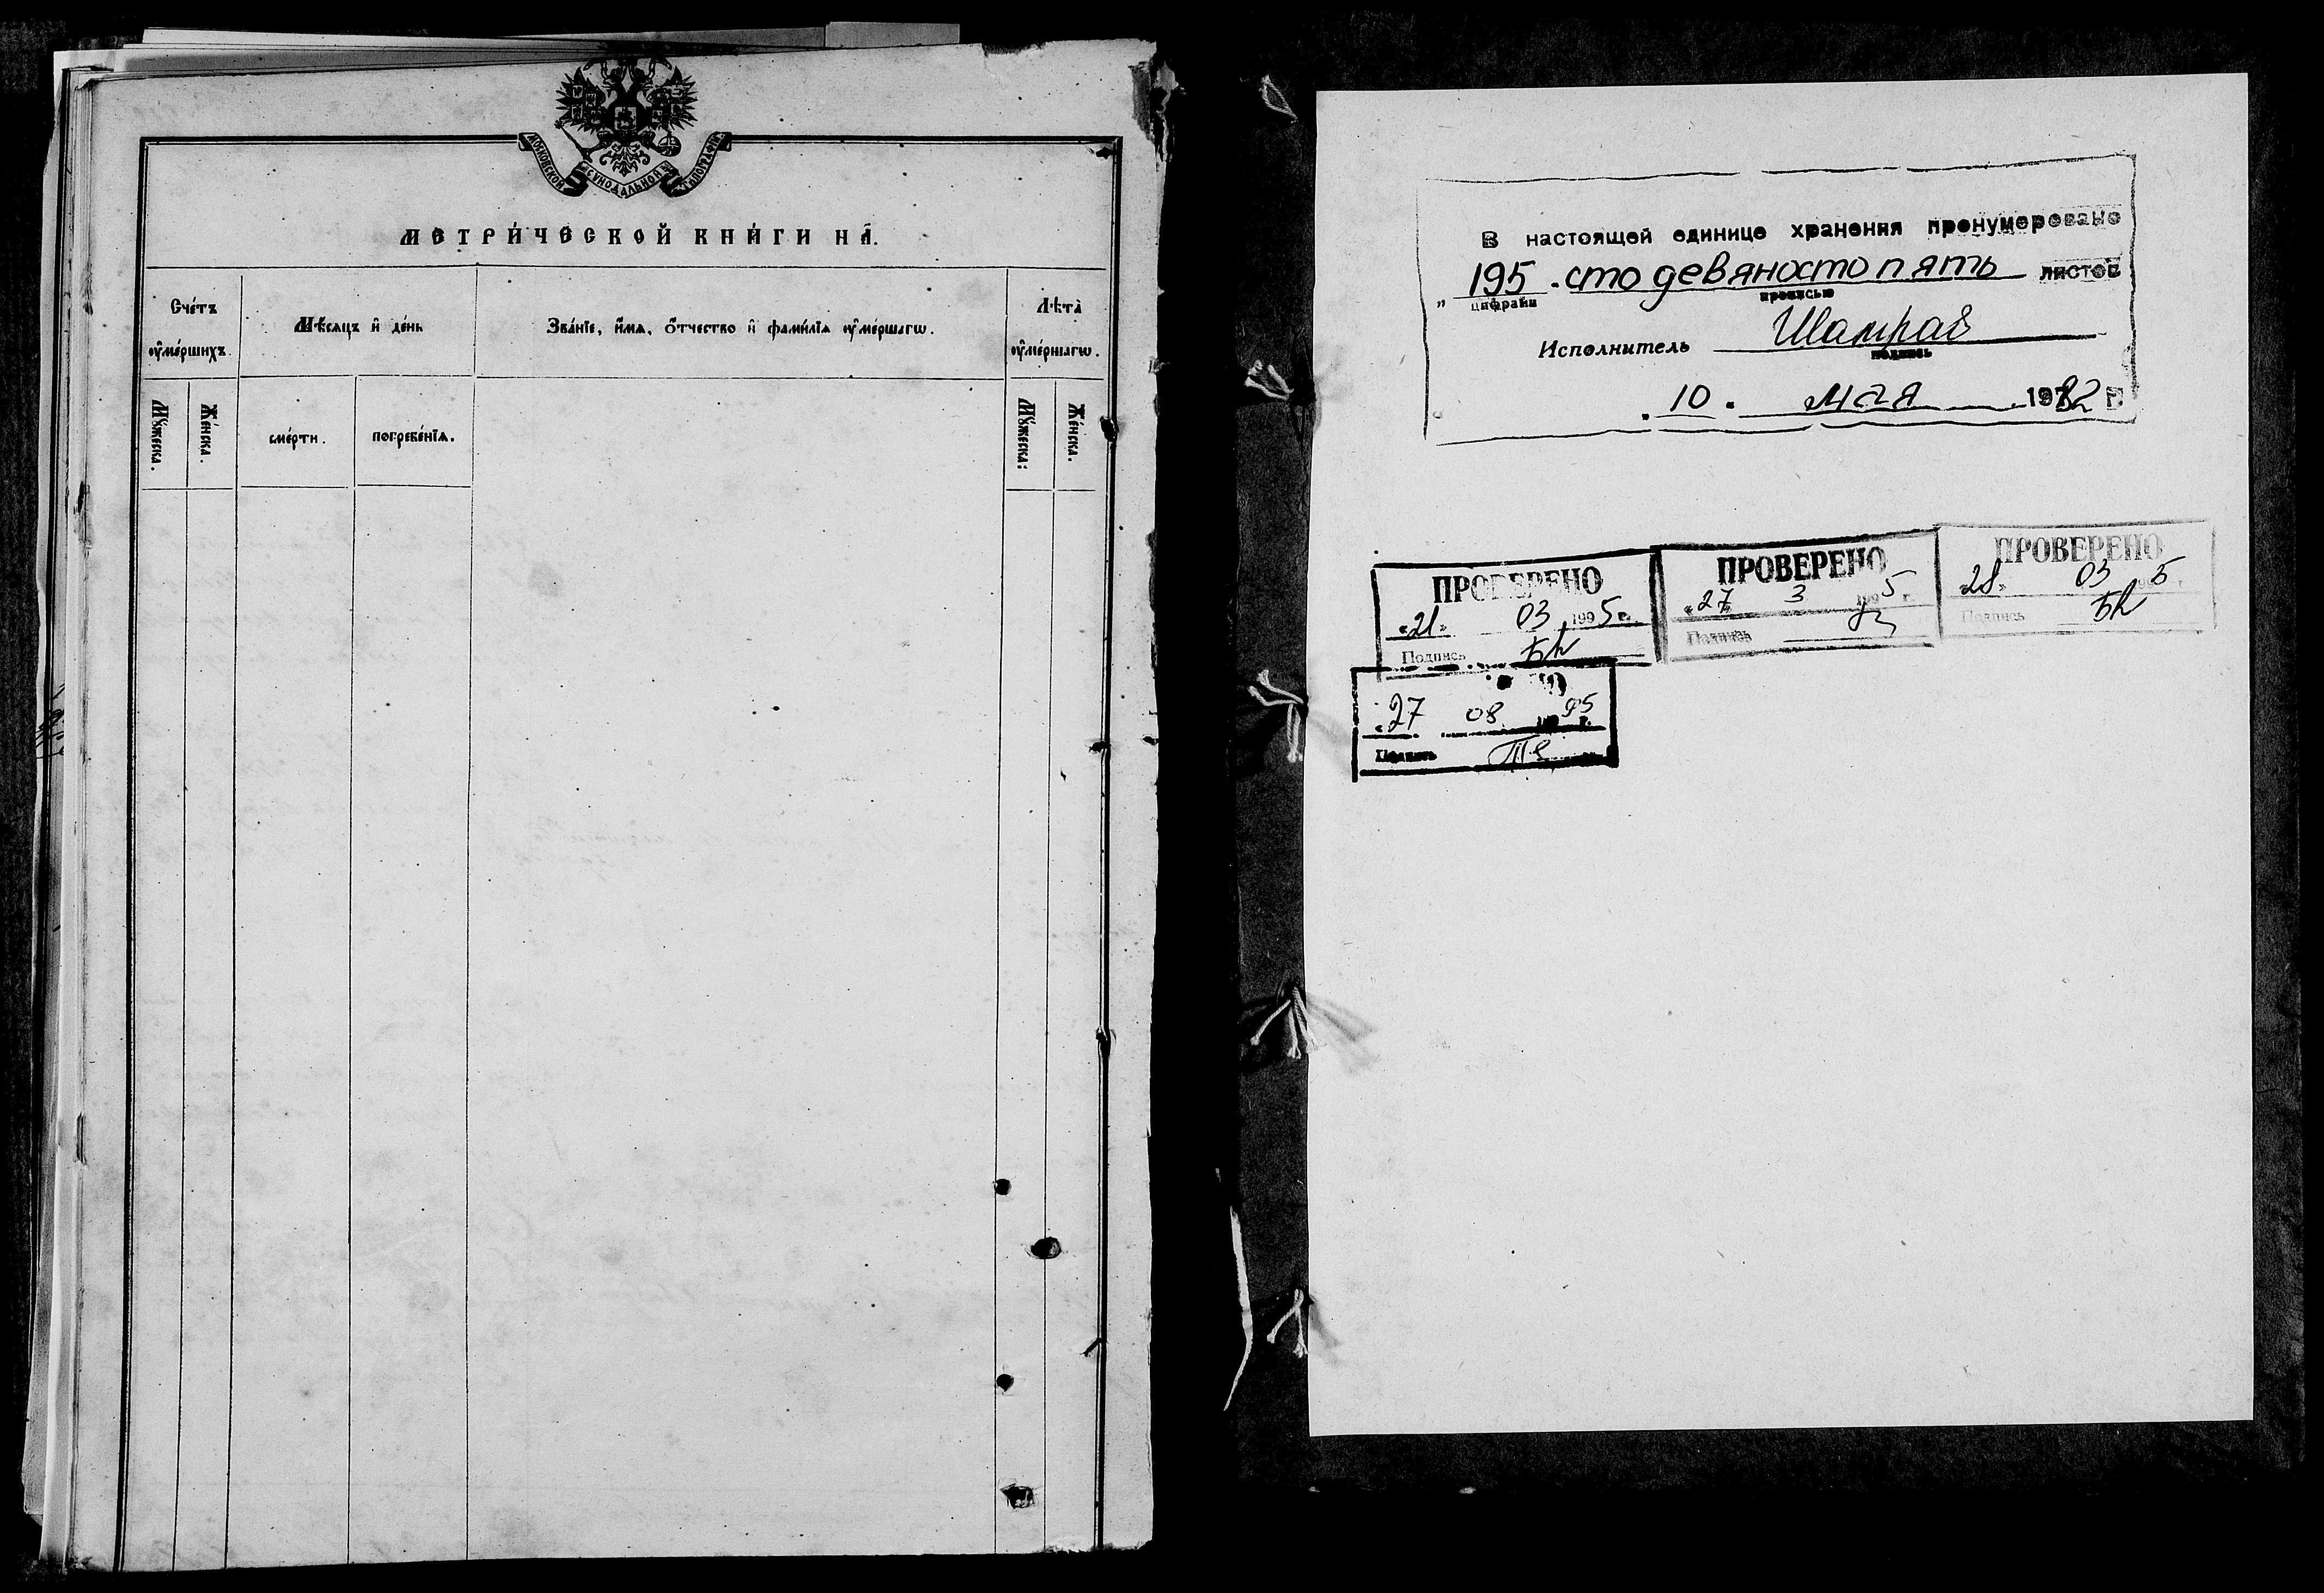 МОСКОВСКОЙ СѴНОДАЛЬНОЙ ТИПОГРАФІИ
МЕТРИ́ЧЕСКОЙ КНИ́ГИ НА̀.
Сче́тъ ᲂу҆ме́ршихъ.
Мѣ́сяцъ и҆ де́нь
Зва́нїе, и҆́мѧ, ѻ҆́тчество и҆ фами́лїѧ ᲂу҆ме́ршагѡ.
Лѣ́та ᲂу҆ме́ршагѡ.
Мꙋ́жеска.
Же́нска.
сме́рти.
погребе́нїѧ.
Мꙋ́жеска:
Же́нска.
В настоящей единице хранения пронумеровано
„ 195 . сто девяносто пять листов
цифрами
прописью
Исполнитель Шамрай
подпись
. 10 . мая 1982 г
ПРОВЕРЕНО
«21» 03 1995 г.
Подпись
ПРОВЕРЕНО
«27» 3 1995 г.
Подпись
ПРОВЕРЕНО
28» 03 1995 г.
Подпись
«27 08 1995 г.
Подпись